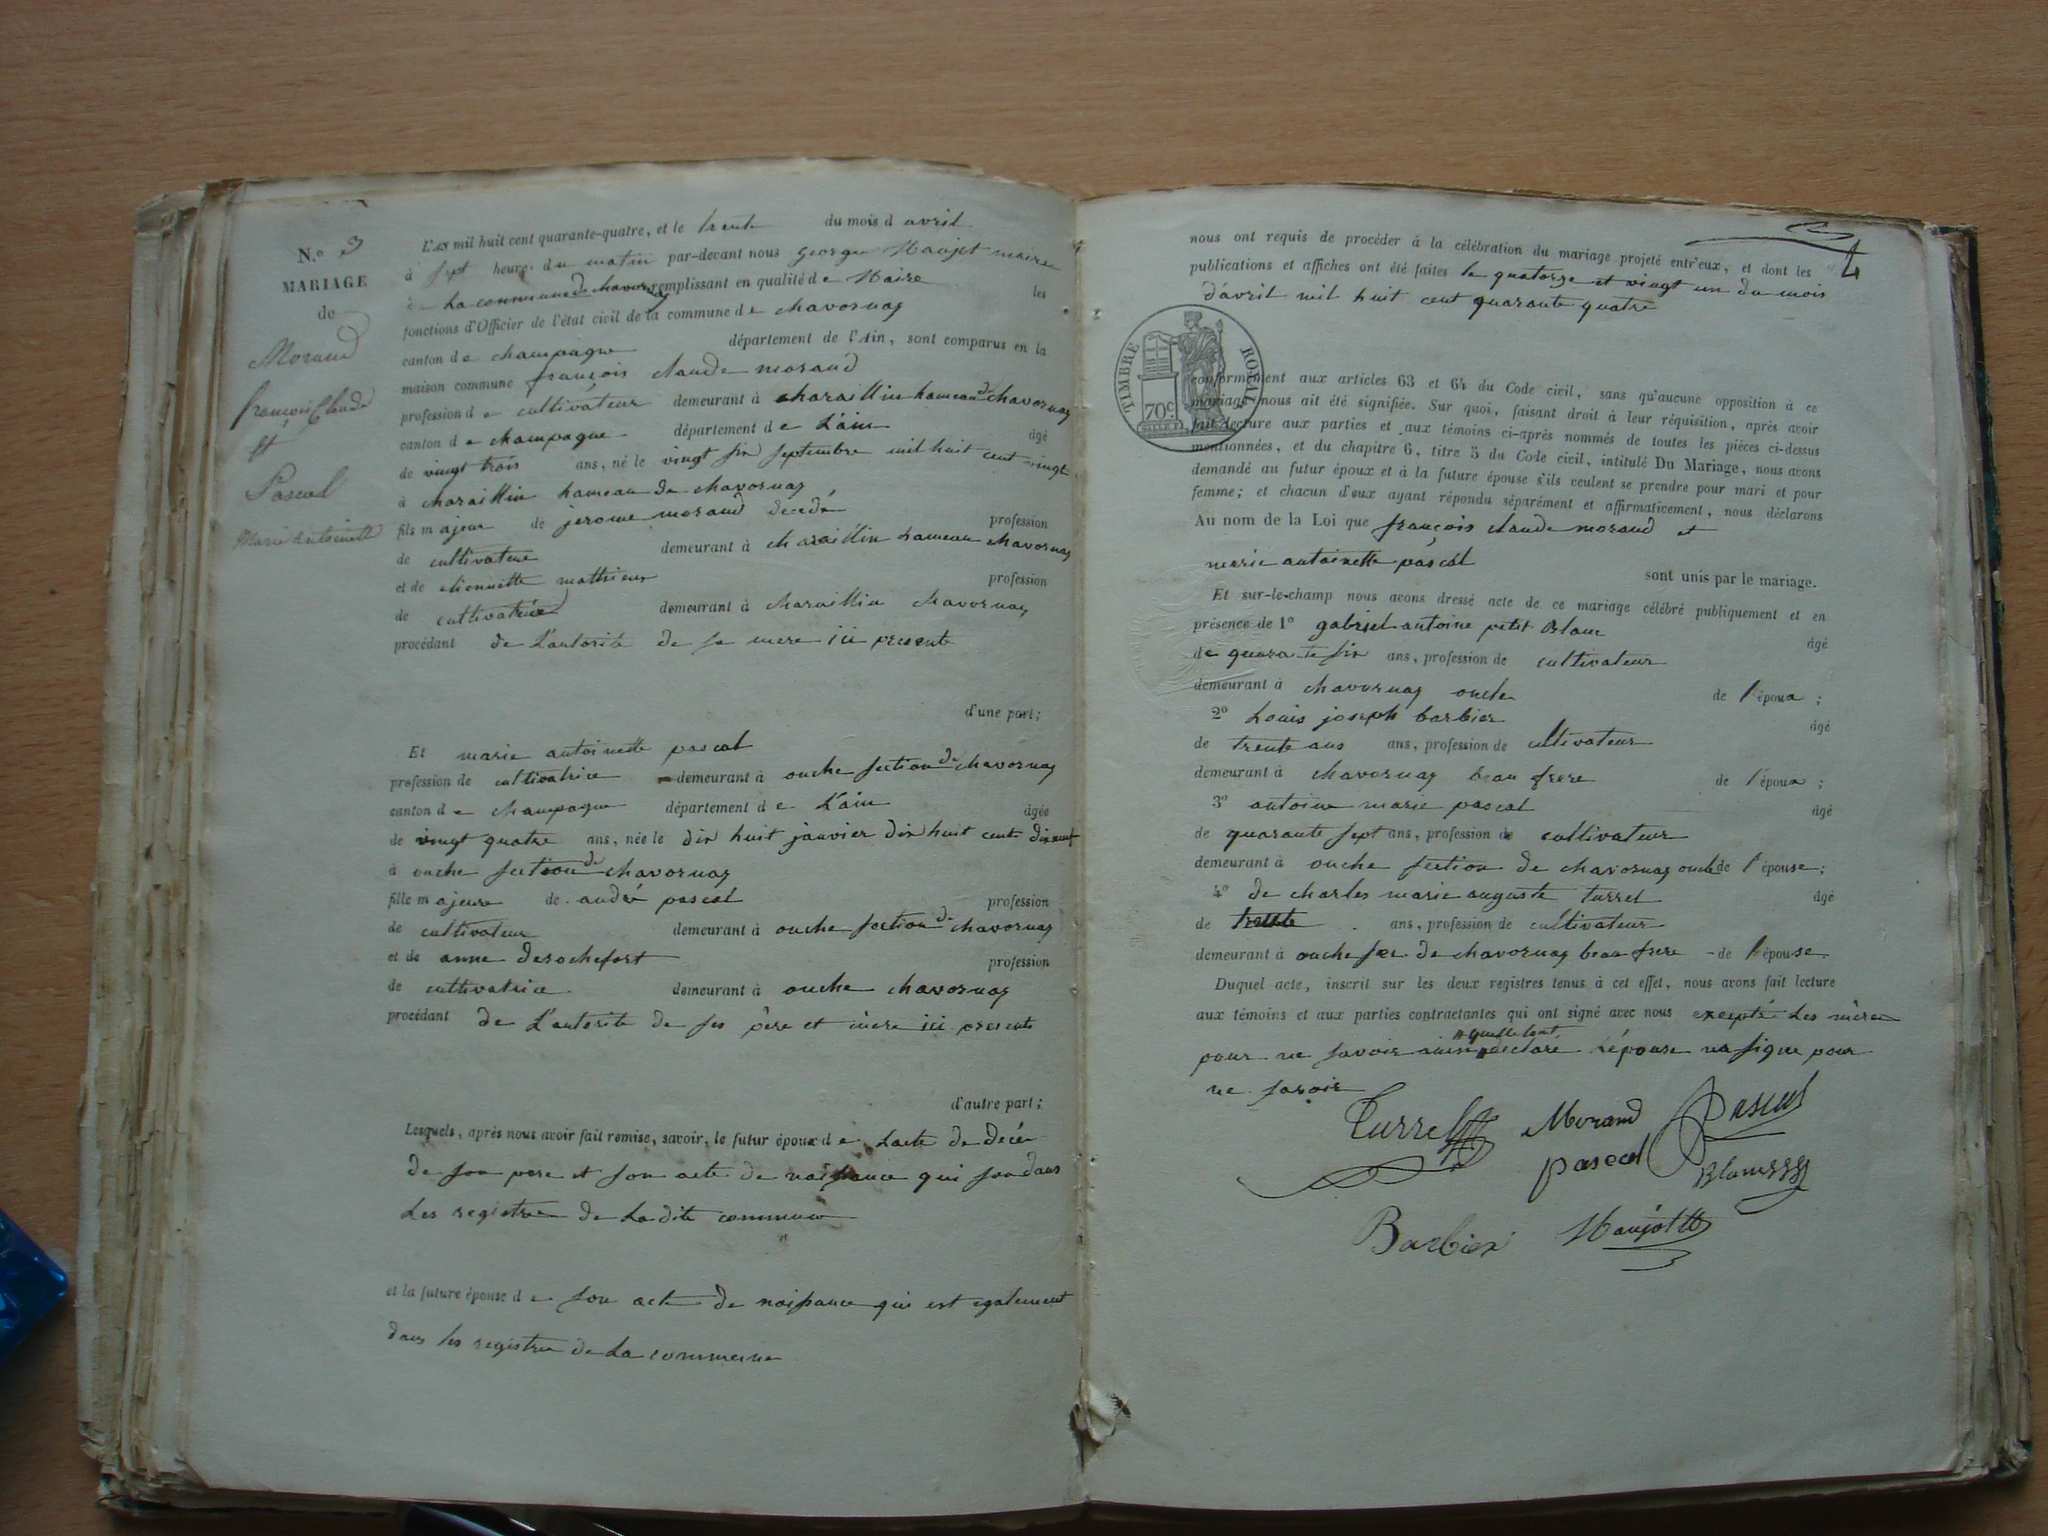 N.o 3
MARIAGE
de
Morand
françois Claude
et
Pascal
Marie antoinette
L'AN mil huit cent quarante-quatre, et le trente du mois d avril
à sept heures du matin par-devant nous george Maujot maire
de La commune de chavornay remplissant en qualité de Maire les
fonctions d'Officier de l'état civil de la commune de chavornay
canton de champagne département de l'Ain, sont comparus en la
maison commune françois claude morand
profession de cultivateur demeurant à charaillin hameau de chavornay
canton de champagne département de L'ain âgé
de vingt trois ans, né le vingt six septembre mil huit cent vingt
à charaillin hameau de chavornay
fils majeur de jerome morand décédé profession
de cultivateur demeurant à charaillin hameau chavornay
et de etiennette mathieux profession
de cultivatrice demeurant à charaillin chavornay
procédant de L'autorité de sa mere ici presente
d'une part;
Et marie antoinette pascal
profession de cultivatrice demeurant à ouche section de chavornay
canton de champagne département de L'ain âgée
de vingt quatre ans, née le dix huit janvier dix huit cent dix neuf
à ouche section de chavornay
fille majeure de andré pascal profession
de cultivateur demeurant à ouche section de chavornay
et de anne derochefort profession
de cultivatrice demeurant à ouche chavornay
procédant de L'autorité de ses père et mère ici presents
d'autre part;
Lesquels, après nous avoir fait remise, savoir, le futur époux de Lacte de décé
de son pere et son acte de naissance qui son dans
Les registre de La dite commune
et la future épouse de son acte de naissance qui est egalement
dans les registre de La commune
4
nous ont requis de procéder à la célébration du mariage projeté entr'eux, et dont les
publications et affiches ont été faites le quatorze et vingt un du mois
d'avril mil huit cent quarante quatre
TIMBRE ROYAL
70c.
conformément aux articles 63 et 64 du Code civil, sans qu'aucune opposition à ce
mariage nous ait été signifiée. Sur quoi, faisant droit à leur réquisition, après avoir
fait lecture aux parties et aux témoins ci-après nommés de toutes les pièces ci-dessus
mentionnées, et du chapitre 6, titre 5 du Code civil, intitulé Du Mariage, nous avons
demandé au futur époux et à la future épouse s'ils veulent se prendre pour mari et pour
femme; et chacun d'eux ayant répondu séparément et affirmativement, nous déclarons
Au nom de la Loi que françois claude morand et
marie antoinette pascal
sont unis par le mariage.
Et sur-le-champ nous avons dressé acte de ce mariage célébré publiquement et en
présence de 1o gabriel antoine petit Blanc âgé
de quarante six ans, profession de cultivateur
demeurant à chavornay oncle de l'époux;
2o Louis joseph barbier âgé
de trente ans ans, profession de cultivateur
demeurant à chavornay beau frere de l'époux;
3o antoine marie pascal âgé
de quarante sept ans, profession de cultivateur
demeurant à ouche section de chavornay oncle de l'épouse;
4o de charles marie auguste turrel âgé
de trente ans, profession de cultivateur
demeurant à ouche sec. de chavornay beau frere de l'épouse
Duquel acte, inscrit sur les deux registres tenus à cet effet, nous avons fait lecture
aux témoins et aux parties contractantes qui ont signé avec nous excepté Les mères
pour ne savoir ainsi quelle lont declaré Lépouse na signe pour
ne savoir
Turrel Morand Pascal
pascal Blanc
Barbier Maujot